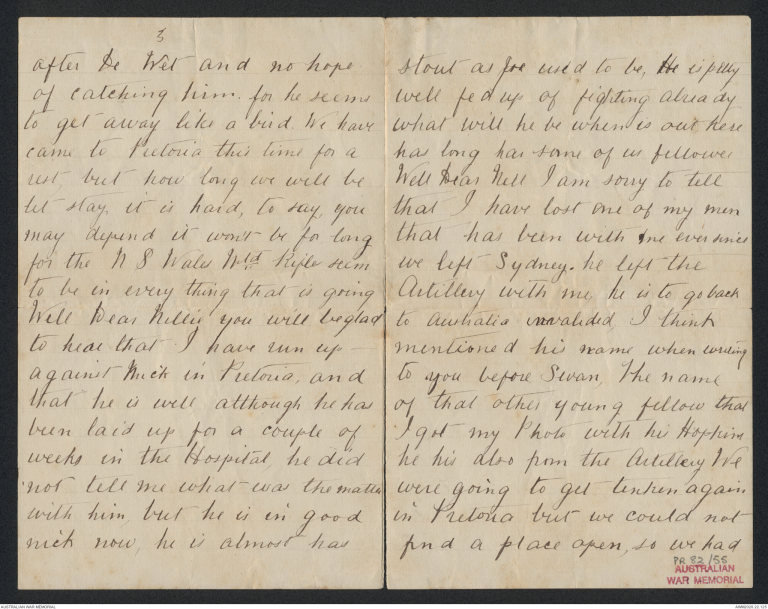 3
after De Wet and no hope
of catching him. for he seems
to get away like a bird. We have
came to Pretoria this time for a
rest but how long we will be
let stay, it is hard, to say, you
may depend it won't be for long
for the N S Wales Mtd Rifles seem
to be in every thing that is going
Well Dear Nellie you will be glad
to hear that I have run up
against Mick in Pretoria, and
that he is well although he has
been laid up for a couple of
weeks in the Hospital he did
not tell me what was the matter
with him, but he is in good
nick now, he is almost has
stout as Joe used to be, He is ptty
well fed up of fighting already
what will he be when is out here
has long has some of us fellowes
Well Dear Nell I am sorry to tell
that I have lost one of my men
that has been with me ever since
we left Sydney. he left the
Artillery with me, he is to go back
to Australia invalided, I think
mentioned his name when writing
to you before Swan, The name
of that other young fellow that
I got my Photo with his Hopkins
he his also from the Artillery We
were going to get tenken again
in Pretoria but we could not
find a place open, so we had
PR 82/55
AUSTRALIAN
WAR MEMORIAL
AUSTRALIAN WAR MEMORIAL
AWM2020.22.125